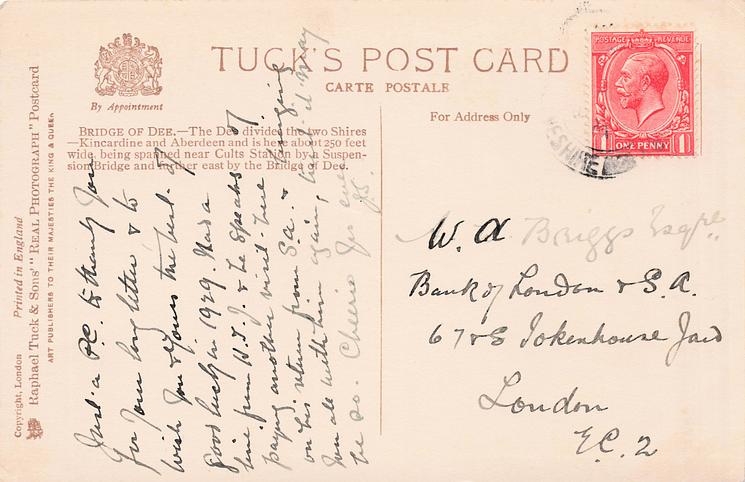 TUCK'S POST CARD
CARTE POSTALE
By Appointment
For Address Only
BRIDGE OF DEE.—The Dee divides the two Shires
—Kincardine and Aberdeen and is here about 250 feet
wide, being spanned near Cults Station by a Suspen-
sion Bridge and further east by the Bridge of Dee.
Copyright, London Printed in England
Raphael Tuck & Sons' "REAL PHOTOGRAPH" Postcard
ART PUBLISHERS TO THEIR MAJESTIES THE KING & QUEEN
POSTAGE REVENUE
1 ONE PENNY 1
Just a P.C. to thank you
for your long letter & to
wish you & yours the best of
good luck in 1929. Had a
line from W.T.J. & he speaks of
paying another visit here
on his return from S.A. & bringing
you all with him again, I hope it may
be so. Cheerio for
W. A Briggs Esqre
Bank of London & S.A.
6 7 & 8 Tokenhouse Yard
London
E.C. 2